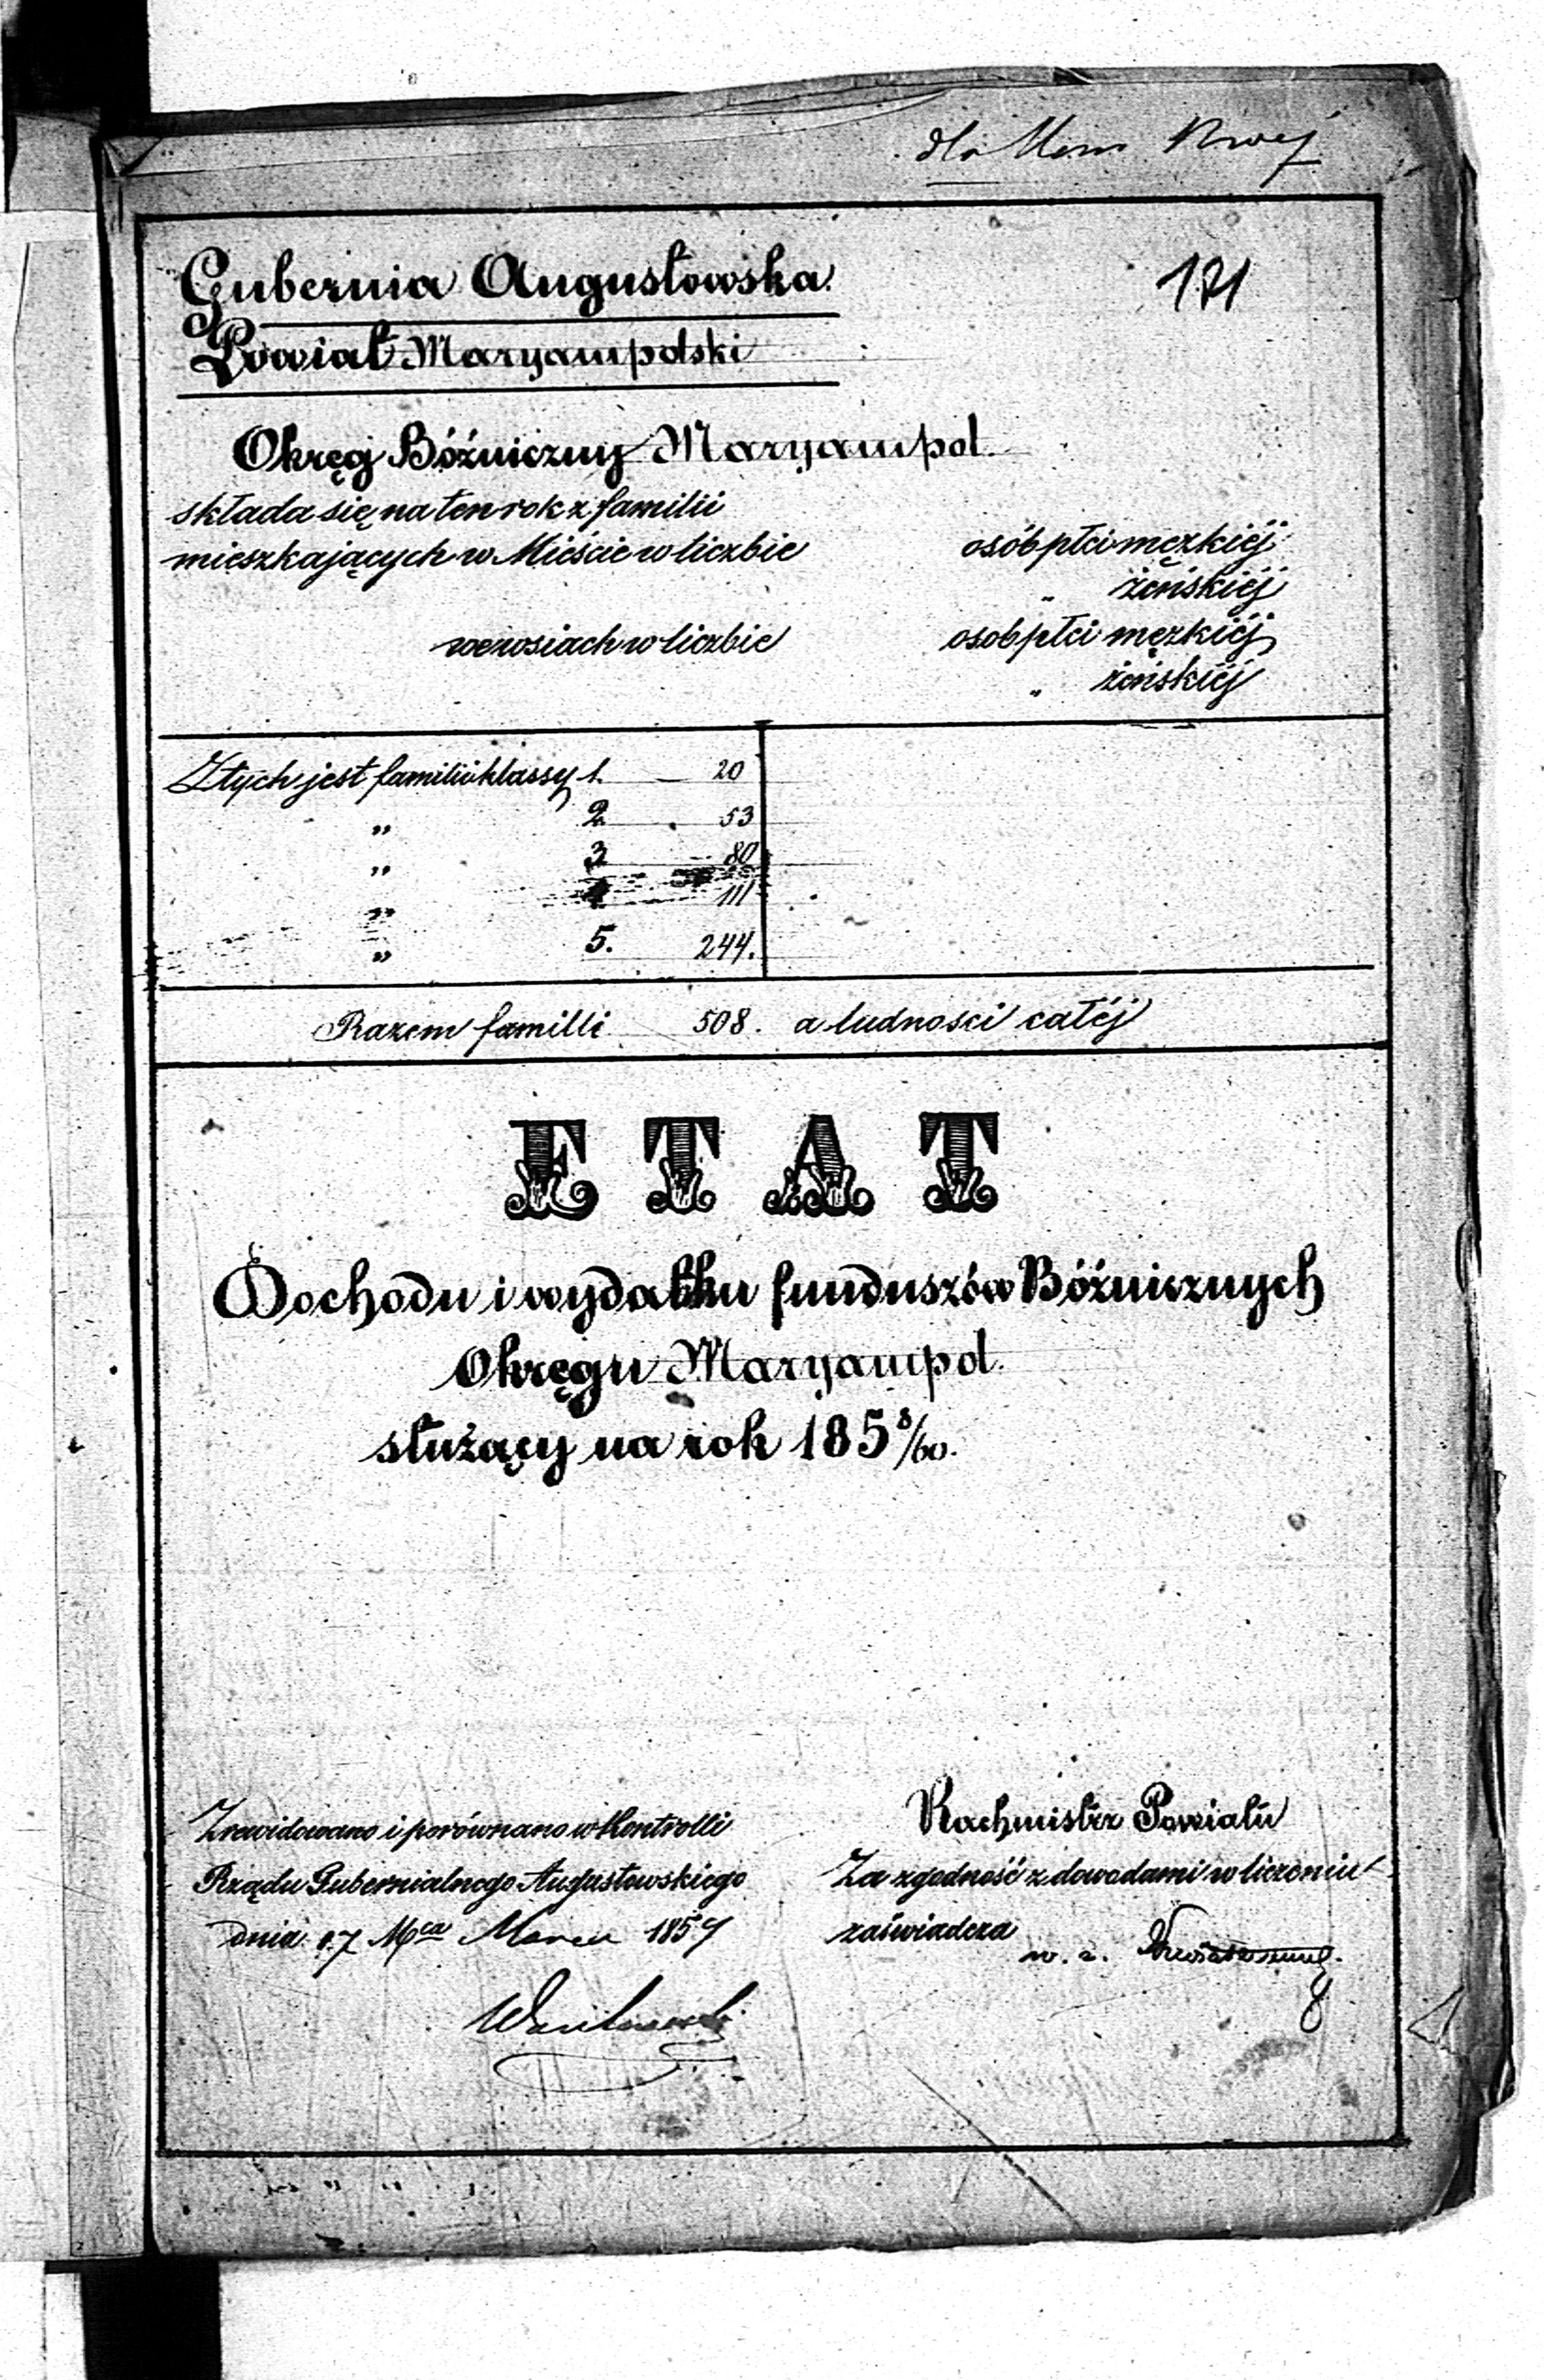 dla
121
Gubernia Augustowska
Powiat Maryampolski
Okręg Bóźniczny Maryampol.
składa się na ten rok z familii
mieszkających w Mieście w liczbie osób płci męzkiéj
„ żeńskiéj
we wsiach w liczbie osob płci męzkiéj
„ żeńskiéj
Z tych jest familii klassy 1. — 20
„ 2. 53
„ 3. 80
„ 4 111
„ 5. 244.
Razem familli 508. a ludnosci całéj
ETAT
Dochodu i wydatku funduszów Bóźnicznych
Okręgu Maryampol.
służący na rok 185 8/60.
Zrewidowano i porównano w Kontrolli
Rządu Gubernialnego Augustowskiego
dnia 17 Mca Marca 1859
Rachmistrz Powiatu
Za zgodność z dowodami w liczeniu
zaświadcza
w. z.
8